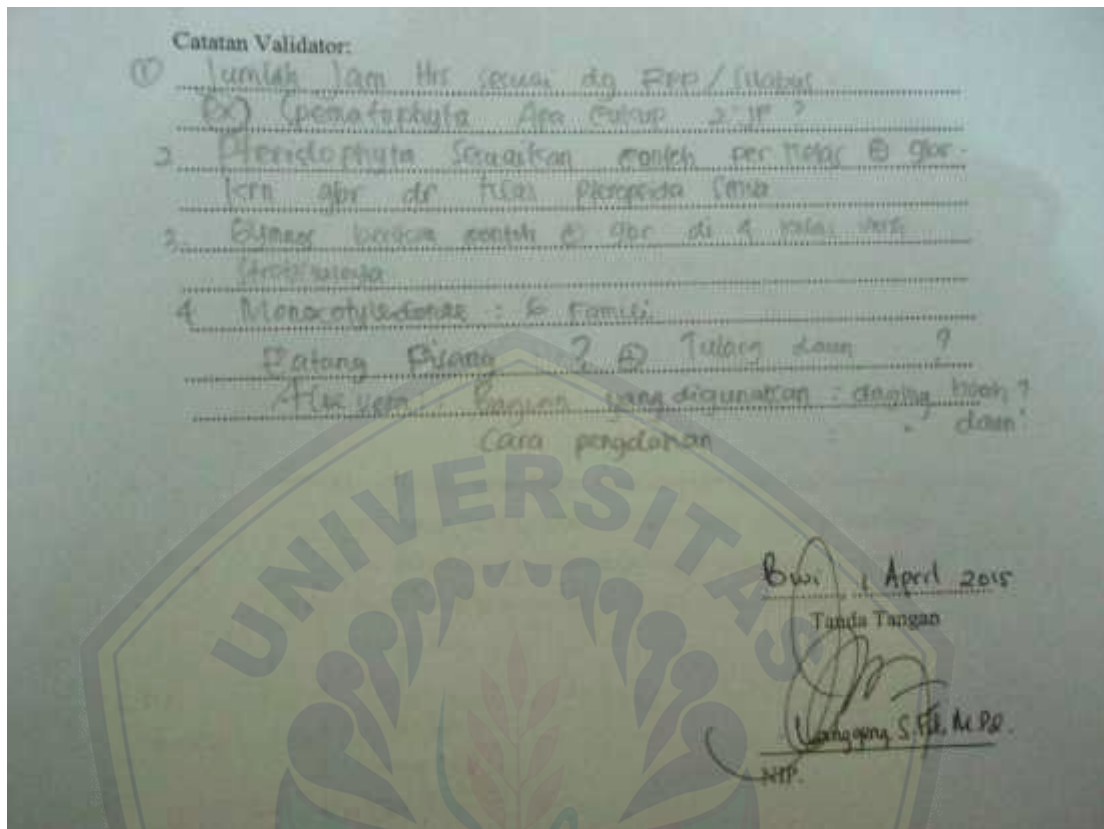 Catatan Validator:
① Jumlah Jam Hrs sesuai dg RPP / Silabus
(Ex) Spematophyta Apa Cukup 2 JP ?
2 Pteridophyta Sesuaikan contoh per kelas ⊕ gbr.
krn gbr dr kelas pteropsida semua
3. Gymnos contoh ⊕ gbr di 4 kelas
Strobilusnya
4 Monocotyledonae : 6 Famili
Batang Pisang ? ⊕ Tulang daun ?
Aloe vera : Bagian yang digunakan : daging buah ?
daun ?
Cara pengolahan
UNIVERSITAS
Bwi, 1 April 2015
Tanda Tangan
S.Pd, M.Pd.
NIP.